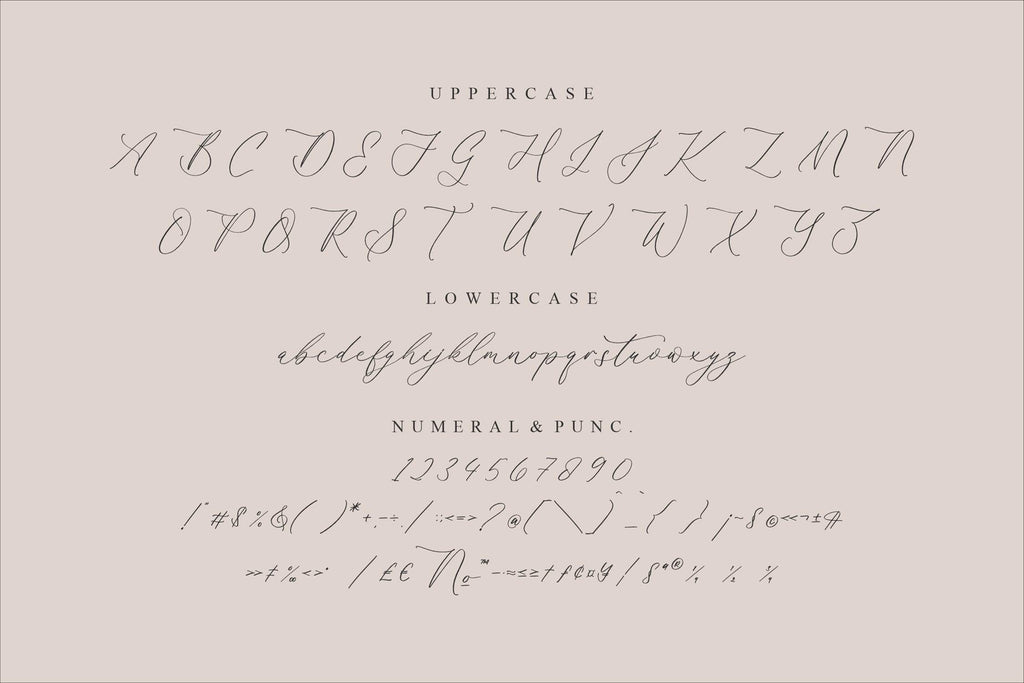 UPPERCASE
A B C D E F G H I J K L M N
O P Q R S T U V W X Y Z
LOWERCASE
abcdefghijklmnopqrstuvwxyz
NUMERAL & PUNC.
1234567890
!"#$%&( )*+,-÷./:;<=>?@[\]^_`{ }¡~§©«¬±¶
»≠‰<>· / £€№™−≈≤≥†ƒ¢¤¥/§ª®